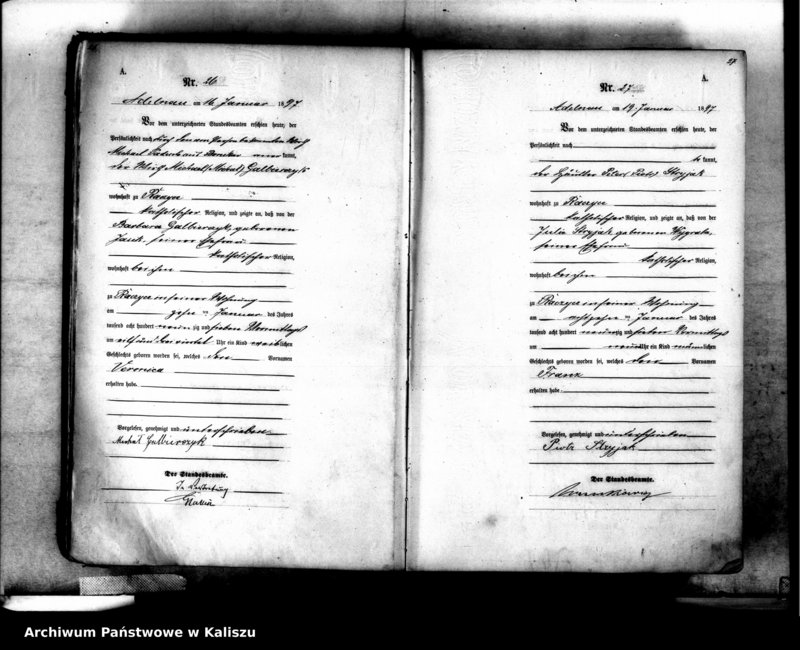 26
A.
Nr. 26
Adelnau am 16. Januar 1897
Vor dem unterzeichneten Standesbeamten erschien heute, der
Persönlichkeit nach durch den von Person bekannten Wirth
Michael aus kannt,
der Wirth Michael (Michał) Galbierczyk
wohnhaft zu Raczyce
katholischer Religion, und zeigte an, daß von der
Barbara Galbierczyk geborenen
seiner Ehefrau
katholischer Religion,
wohnhaft bei ihm
zu Raczyce in seiner Wohnung
am zehn ten Januar des Jahres
tausend acht hundert neunzig und sieben Vormittags
um Uhr ein Kind weiblichen
Geschlechts geboren worden sei, welches den Vornamen
Veronica
erhalten habe.
Vorgelesen, genehmigt und unterschrieben
Michał Galbierczyk
Der Standesbeamte.
In Vertretung
27
A.
Nr. 27
Adelnau am 19. Januar 1897
Vor dem unterzeichneten Standesbeamten erschien heute, der
Persönlichkeit nach
be kannt,
der Häusler Peter (Piotr) Stryjak
wohnhaft zu Raczyce
katholischer Religion, und zeigte an, daß von der
Julia Stryjak geborenen
seiner Ehefrau
katholischer Religion,
wohnhaft bei ihm
zu Raczyce in seiner Wohnung
am achtzehn ten Januar des Jahres
tausend acht hundert neunzig und sieben Vormittags
um neun Uhr ein Kind männlichen
Geschlechts geboren worden sei, welches den Vornamen
Franz
erhalten habe.
Vorgelesen, genehmigt und unterschrieben
Piotr Stryjak
Der Standesbeamte.
Archiwum Państwowe w Kaliszu